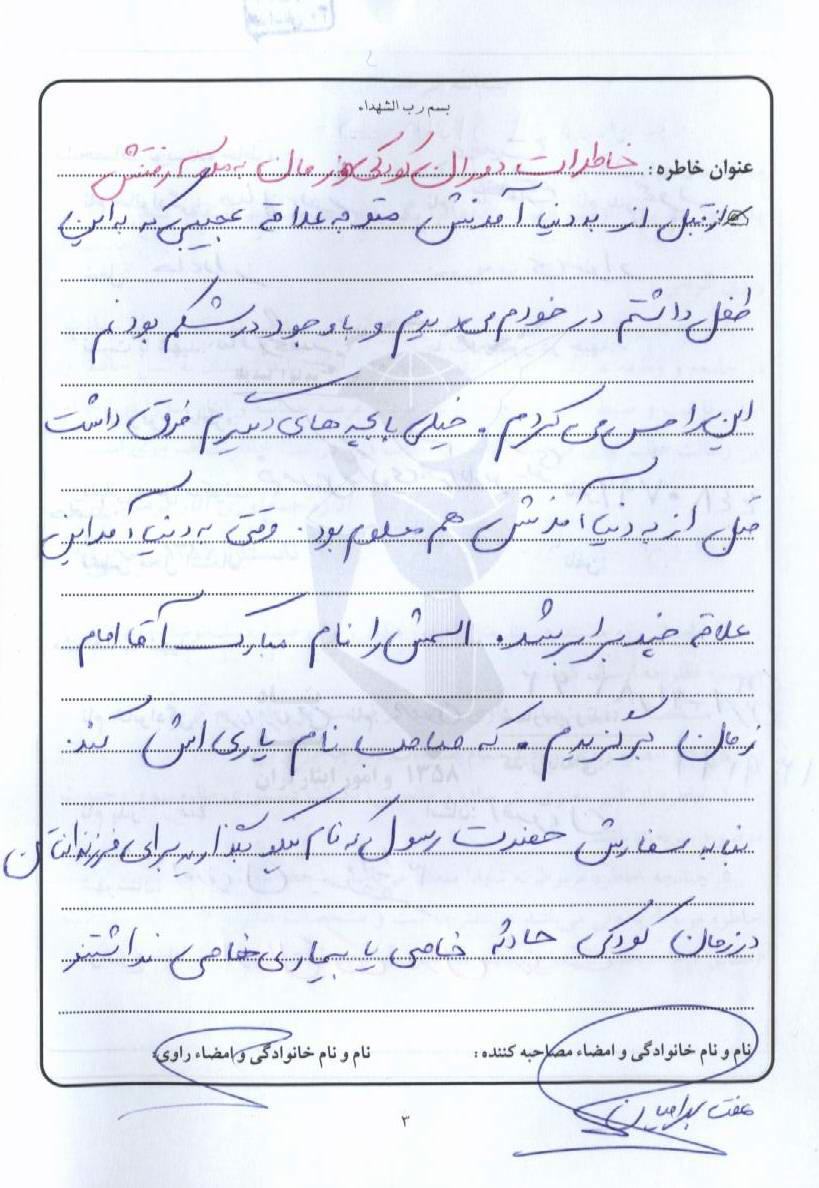 بسم رب الشهداء
عنوان خاطره : خاطرات دوران کودکی و زمان به مدرسه رفتنش
از قبل از بدنیا آمدنش متوجه علاقه عجیبی که به این
طفل داشتم در خودم می دیدم و با وجود در شکم بودنم
این را حس می کردم . خیلی با بچه های دیگرم فرق داشت
قبل از به دنیا آمدنش هم معلوم بود . وقتی به دنیا آمد این
علاقه چند برابر شد . اسمش را نام مبارک آقا امام
زمان برگزیدم . که صاحب نام یاری اش کند .
بنابه سفارش حضرت رسول که نام نیکو بگذارید برای فرزندانتان
در زمان کودکی حادثه خاصی یا بیماری خاصی نداشتند
نام و نام خانوادگی و امضاء مصاحبه کننده :
نام و نام خانوادگی و امضاء راوی:
عفت
۳